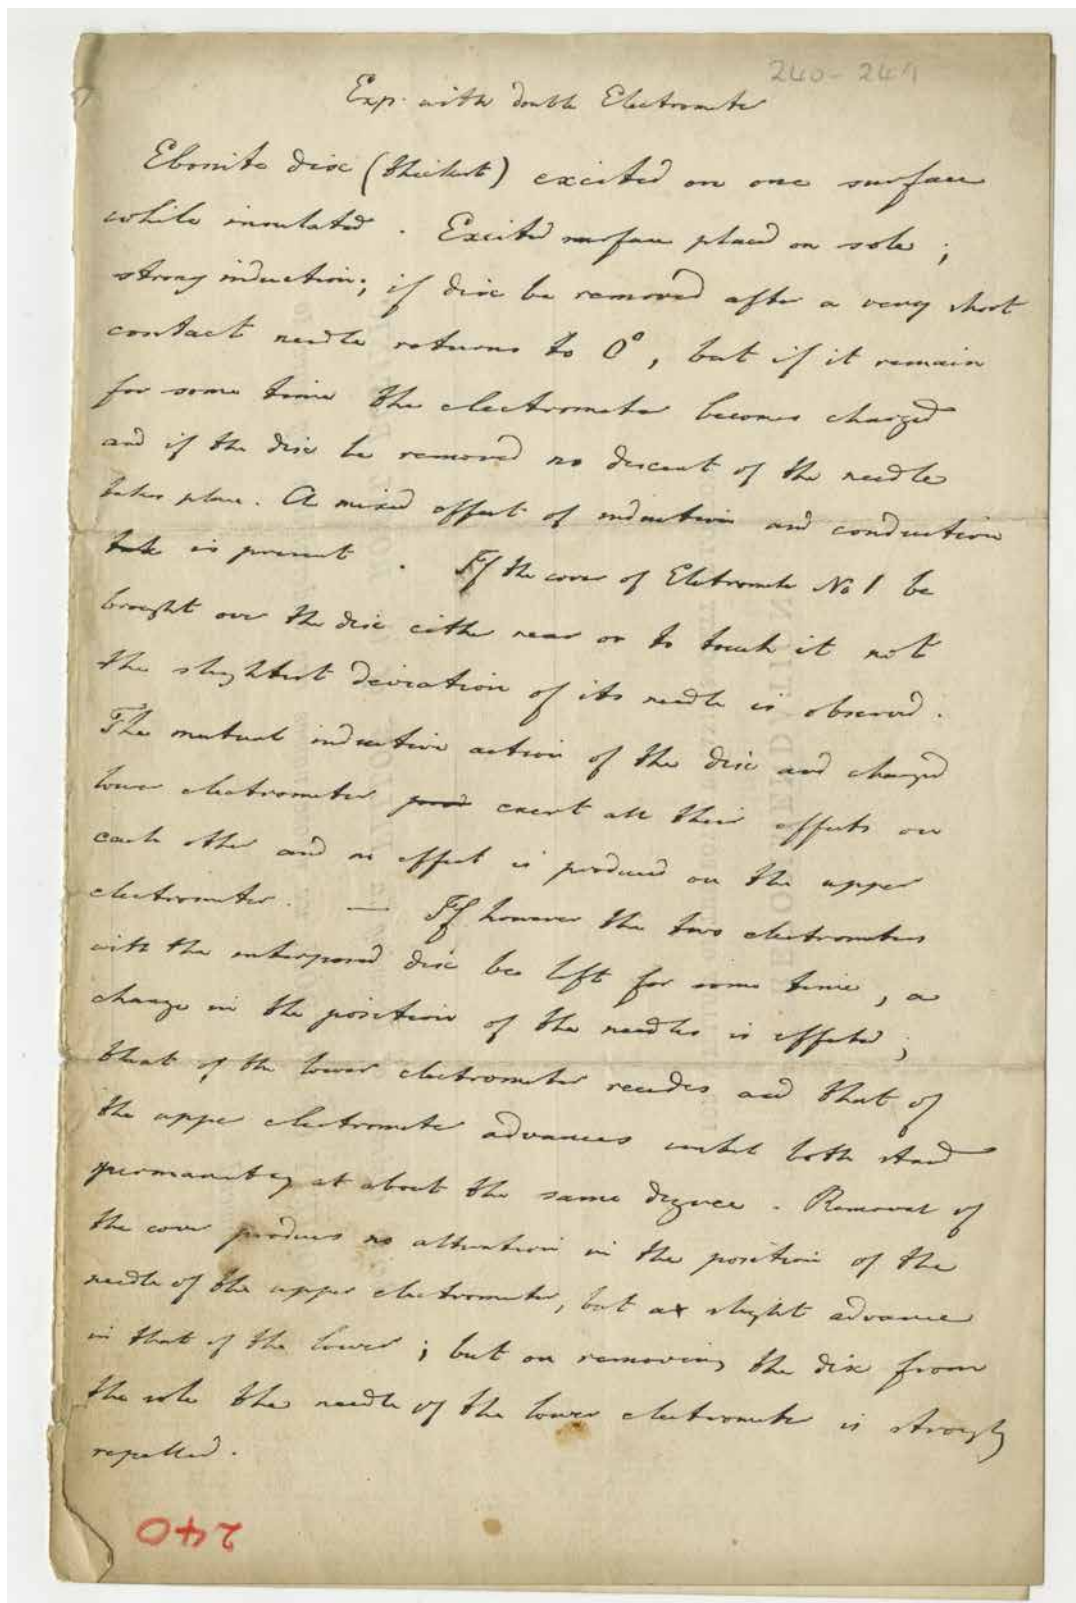 240-244
Exp. with double Electrometer
Ebonite disc (thickest) excited on one surface
while insulated. Excited surface placed on sole;
strong induction; if disc be removed after a very short
contact needle returns to 0°, but if it remain
for some time the electrometer becomes charged
and if the disc be removed no descent of the needle
takes place. A mixed effect of induction and conduction
is present. If the cover of Eletrometer No 1 be
brought over the disc either near or to touch it not
the slightest deviation of its needle is observed.
The mutual inductive action of the disc and charged
lower electrometer exert all their effects on
each other and no effect is produced on the upper
electrometer. — If however the two electrometers
with the interposed disc be left for some time, a
change in the position of the needles is effected;
that of the lower electrometer recedes and that of
the upper electrometer advances until both stand
permanently at about the same degree. Removal of
the cover produces no alteration in the position of the
needle of the upper electrometer, but a slight advance
in that of the lower; but on removing the disc from
the sole the needle of the lower electrometer is strongly
repelled.
240